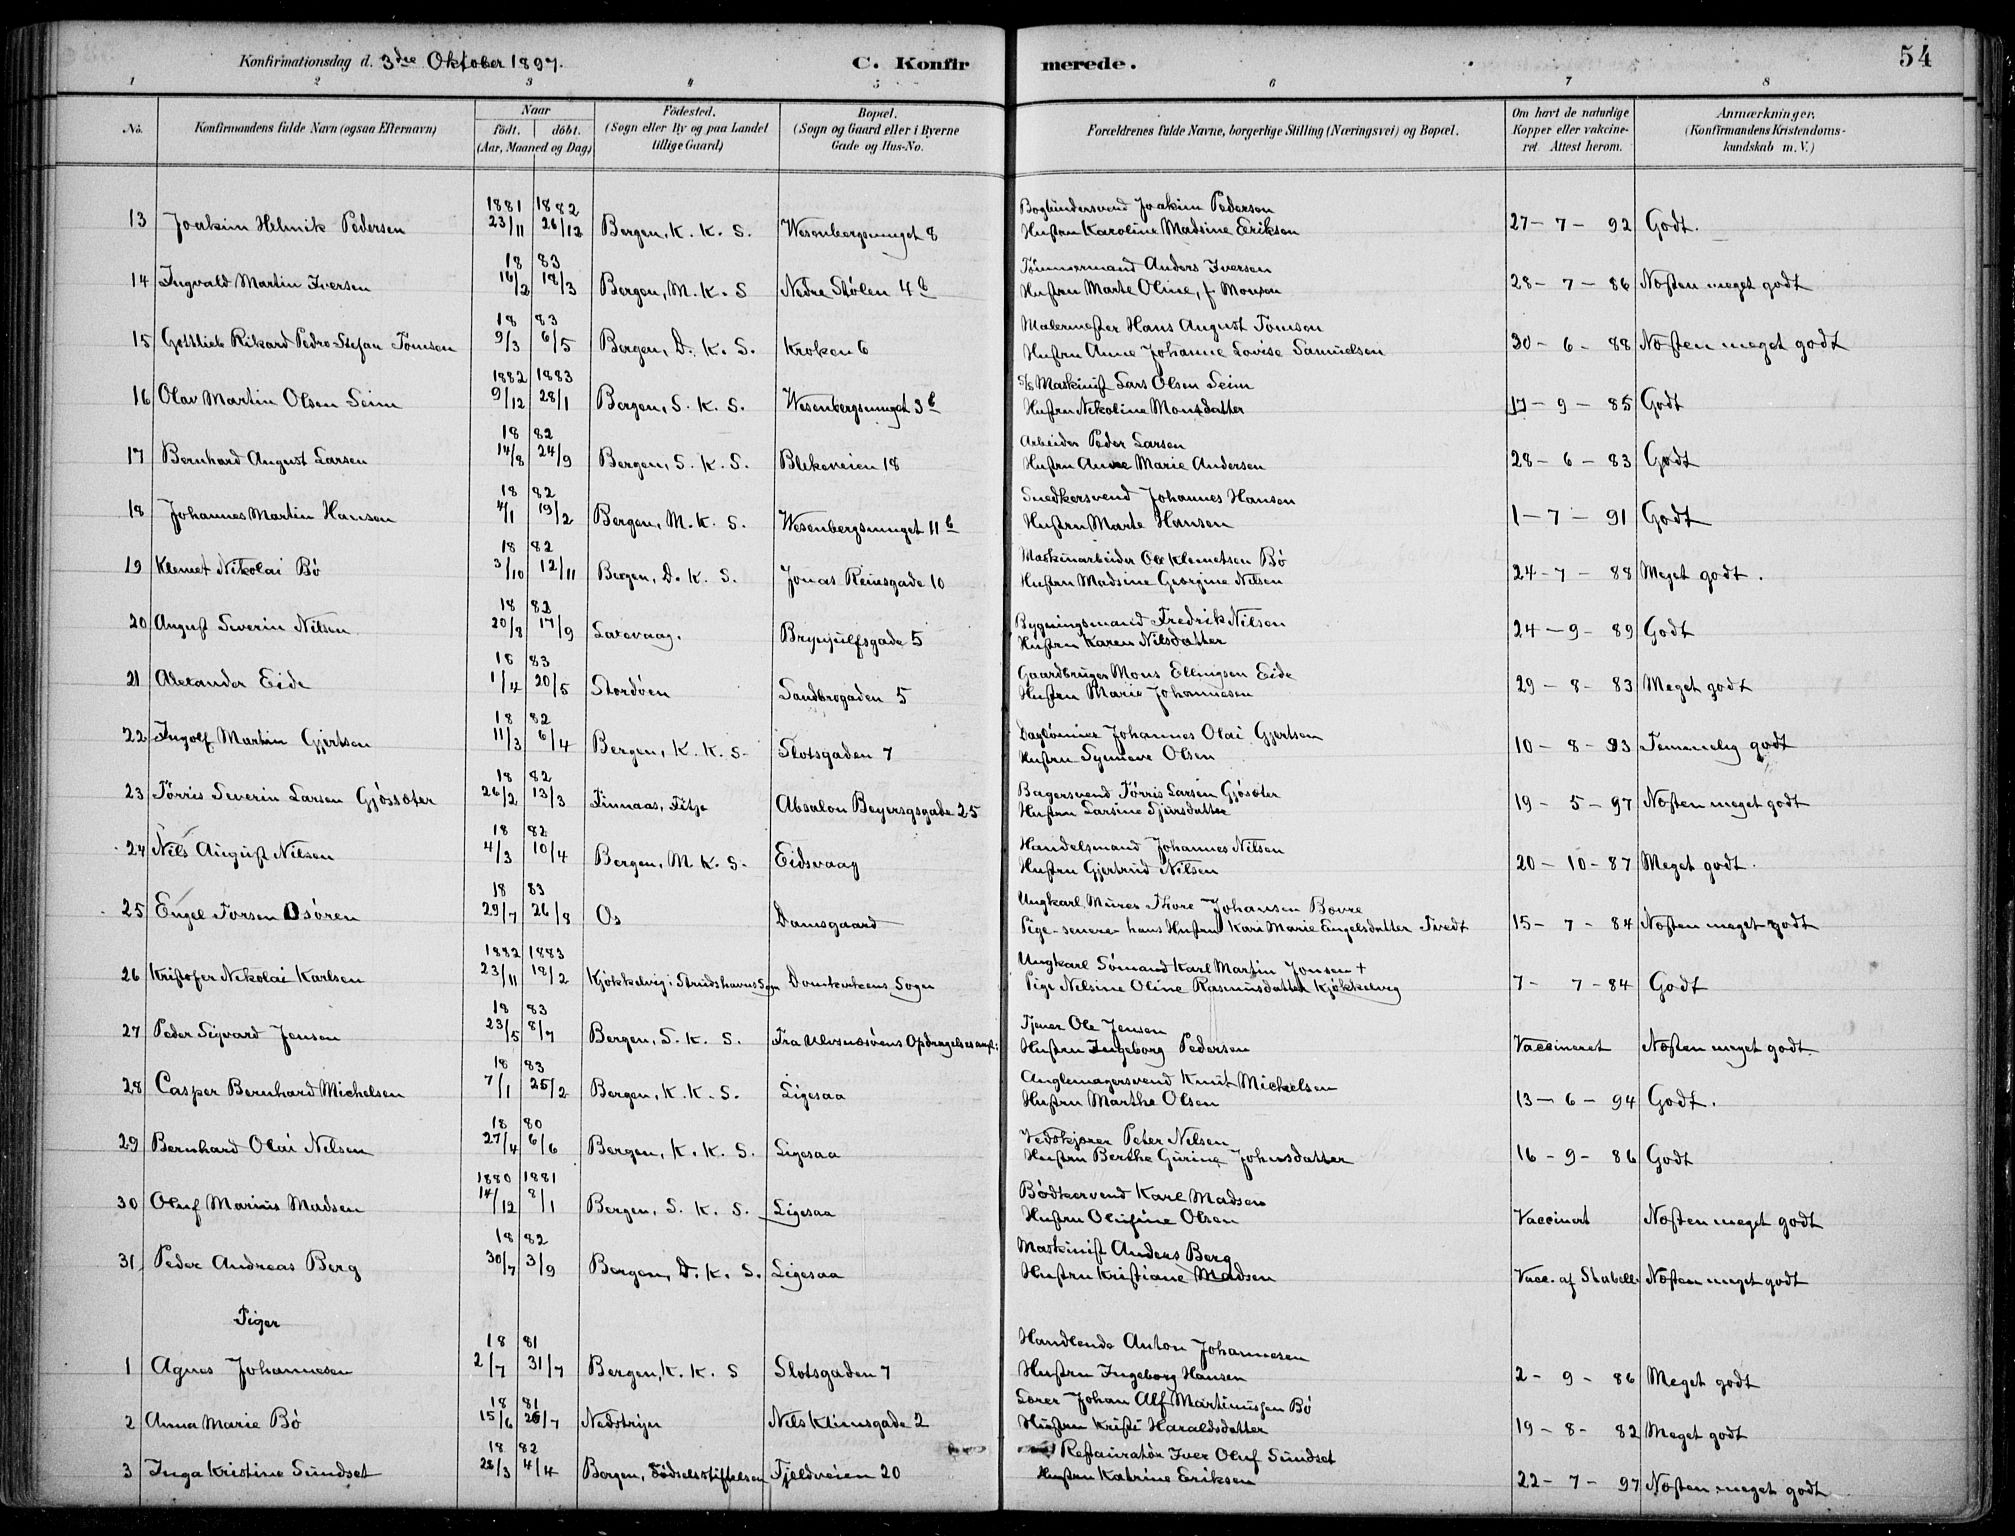 Konfirmationsdag d. 3die Oktober 1897.
C. Konfirmerede.
54
1 2 3 4 5 6 7 8
No. Konfirmandens fulde Navn (ogsaa Efternavn) Naar født. døbt. (Aar, Maaned og Dag) Fødested. (Sogn eller By og paa Landet tillige Gaard) Bopæl. (Sogn og Gaard eller i Byerne Gade og Hus-No. Forældrenes fulde Navne, borgerlige Stilling (Næringsvei) og Bopæl. Om havt de naturlige Kopper eller vakcineret. Attest herom. Anmærkninger. (Konfirmandens Kristendomskundskab m. V.)
1881 1882 Bogbindersvend Joakim Pedersen
13 Joakim Helmik Pedersen 23/11 26/12 Bergen, K. K. S. Wesenbergsmuget 8 Hustru Karoline Madsine Eriksen 27-7-92 Godt.
18 83 Tømmermand Anders Iversen
14 Ingvald Martin Iversen 16/2 18/3 Bergen, M. K. S Nedre Stølen 4b Hustru Marte Oline, f. Monsen 28-7-86 Næsten meget godt
18 83 Malermester Hans August Tomsen
15 Gottlieb Rikard Pedro Stefan Tomsen 9/3 6/5 Bergen, D. K. S. Kroken 6 Hustru Anne Johanne Lovise Samuelsen 30-6-88 Næsten meget godt
1882 1883 S/S Maskinist Lars Olsen Seim
16 Olav Martin Olsen Seim 9/12 28/1 Bergen, S. K. S. Wesenbergsmuget 3b Hustru Nikoline Monsdatter 17-9-85 Godt
18 82 Arbeider Peder Larsen
17 Bernhard August Larsen 14/8 24/9 Bergen, S. K. S. Blekeveien 18 Hustru Anne Marie Andersen 28-6-83 Godt
18 82 Snedkersvend Johannes Hansen
18 Johannes Martin Hansen 4/1 19/2 Bergen, M. K. S. Wesenbergsmuget 11b Hustru Marte Hansen 1-7-91 Godt
18 82 Maskinarbeider Ole Klemetsen Bø
19 Klemet Nikolai Bø 3/10 12/11 Bergen, D. K. S. Jonas Reinsgade 10 Hustru Madsine Georgine Nilsen 24-7-88 Meget godt.
18 82 Bygningsmand Fredrik Nilsen
20 August Severin Nilsen 20/8 17/9 Laxevaag. Brynjulfsgade 5 Hustru Karen Nilsdatter 24-9-89 Godt
18 83 Gaardbruger Mons Ellingsen Eide
21 Alexander Eide 1/4 20/5 Stordøen Sandbrogaden 5 Hustru Marie Johannesen 29-8-83 Meget godt
18 82 Daglønner Johannes Olai Gjertsen
22 Ingolf Martin Gjertsen 11/3 6/4 Bergen, K. K. S. Slotsgaden 7 Hustru Synnove Olsen 10-8-93 Temmelig godt
18 82 Bagersvend Tørris Larsen Gjøsæter
23 Tørris Severin Larsen Gjøssæter 26/2 13/3 Finnaas, Fitje Absalon Beyersgsgade 25 Hustru Larsine Sjursdatter 19-5-97 Næsten meget godt
18 82 Handelsmand Johannes Nilsen
24 Nils August Nilsen 4/3 10/4 Bergen, M. K. S. Eidsvaag Hustru Gjertrud Nilsen 20-10-87 Meget godt.
18 83 Ungkarl, Murer Thore Johansen Bovre
25 Engel Torsen Osøren 29/7 26/8 Os Damsgaard Pige - senere hans Hustru Kari Marie Engelsdatter Tvedt 15-7-84 Næsten meget godt
1882 1883 Ungkarl Sømand Karl Martin Jonsen +
26 Kristofer Nikolai Karlsen 23/11 18/2 Kjøkkelvig i Strudshavns Sogn Domkirkens Sogn Pige Nilsine Oline Rasmusdatter Kjøkkelvig 7-7-84 Godt
18 83 Tjener Ole Jensen
27 Peder Sigvard Jensen 23/5 8/7 Bergen, S. K. S. Fra Ulvsnæsøens Opdragelsesanst: Hustru Ingeborg Pedersen Vaccineret Næsten meget godt
18 83 Anglemagersvend Knut Michelsen
28 Casper Bernhard Michelsen 7/1 25/2 Bergen, K. K. S. Ligesaa Hustru Marthe Olsen 13-6-94 Godt.
18 80 Vedskjærer Peter Nilsen
29 Bernhard Olai Nilsen 27/4 6/6 Bergen, K. K. S. Ligesaa Hustru Berthe Gurine Johnsdatter 16-9-86 Godt
1880 1881 Bødkersvend Karl Madsen
30 Oluf Marius Madsen 14/12 8/1 Bergen, S. K. S. Ligesaa Hustru Olufine Olsen Vaccinert Næsten meget godt
18 82 Maskinist Anders Berg
31 Peder Andreas Berg 30/7 3/9 Bergen, D. K. S. Ligesaa Hustru Kristiane Madsen Vacc. af Stabell Næsten meget godt
Piger
18 81 Handlende Anton Johannesen
1 Agnes Johannesen 2/7 31/7 Bergen, K. K. S Slotsgaden 7 Hustru Ingeborg Hansen 2-9-86 Meget godt
18 81 Lærer Johan Alf Martinussen Bø
2 Anna Marie Bø 15/6 26/7 Nedstryn Nils Klimsgade 2 Hustru Kristi Haraldsdatter 19-8-82 Meget godt
18 82 Restauratør Iver Oluf Sundset
3 Inga Kristine Sundset 28/3 4/4 Bergen, Fødselsstiftelsen Fjeldveien 20 Hustru Katrine Eriksen 22-7-97 Næsten meget godt